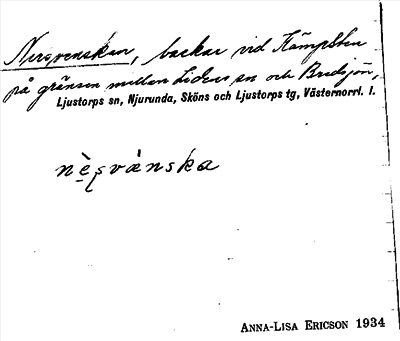 Nersvenskan, backar vid Kämpsten
på gränsen mellan Lidens sn och Bredsjön,
Ljustorps sn, Njurunda, Sköns och Ljustorps tg, Västernorrl. l.
nèșvànska
ANNA-LISA ERICSON 1934